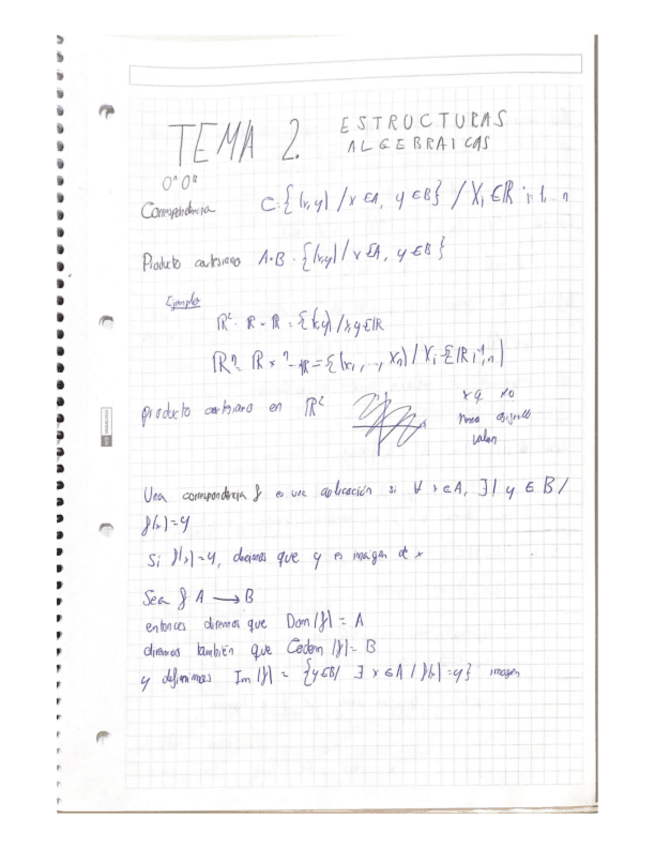 TEMA 2. ESTRUCTURAS
ALGEBRAICAS
Correspondencia C:{(x,y) /x ∈A, y ∈B} / Xi ∈ℝ i:1...n
Producto cartesiano A·B = {(x,y) / x ∈A, y ∈B}
Ejemplo
ℝ² = ℝ × ℝ = {(x,y) / x,y ∈ℝ
ℝⁿ = ℝ × ⁿ ℝ = {(x₁, .., Xn) / Xi ∈ ℝ i 1,n}
producto cartesiano en ℝ²
valen
Una correspondencia f es una aplicación si ∀ x ∈A, ∃! y ∈ B /
f(x)=y
Si f(x)=y, decimos que y es imagen de x
Sea f A → B
entonces diremos que Dom(f) = A
diremos también que Codom (f)= B
y definimos Im (f) = {y∈B/ ∃ x ∈A / f(x) =y} imagen